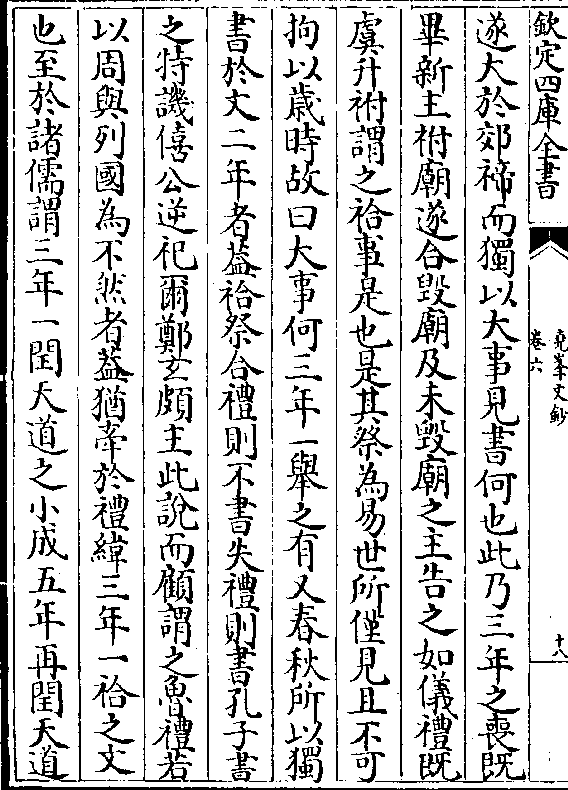 欽定四庫全書
堯峯文鈔
卷六
十八
遂大於郊禘而獨以大事見書何也此乃三年之喪既
畢新主祔廟遂合毀廟及未毀廟之主告之如儀禮既
虞升祔謂之祫事是也是其祭為易世所僅見且不可
拘以歲時故曰大事何三年一舉之有又春秋所以獨
書於文二年者蓋祫祭合禮則不書失禮則書孔子書
之特譏僖公逆祀爾鄭玄頗主此說而顧謂之魯禮若
以周與列國為不然者蓋猶牽於禮緯三年一祫之文
也至於諸儒謂三年一閏天道之小成五年再閏天道